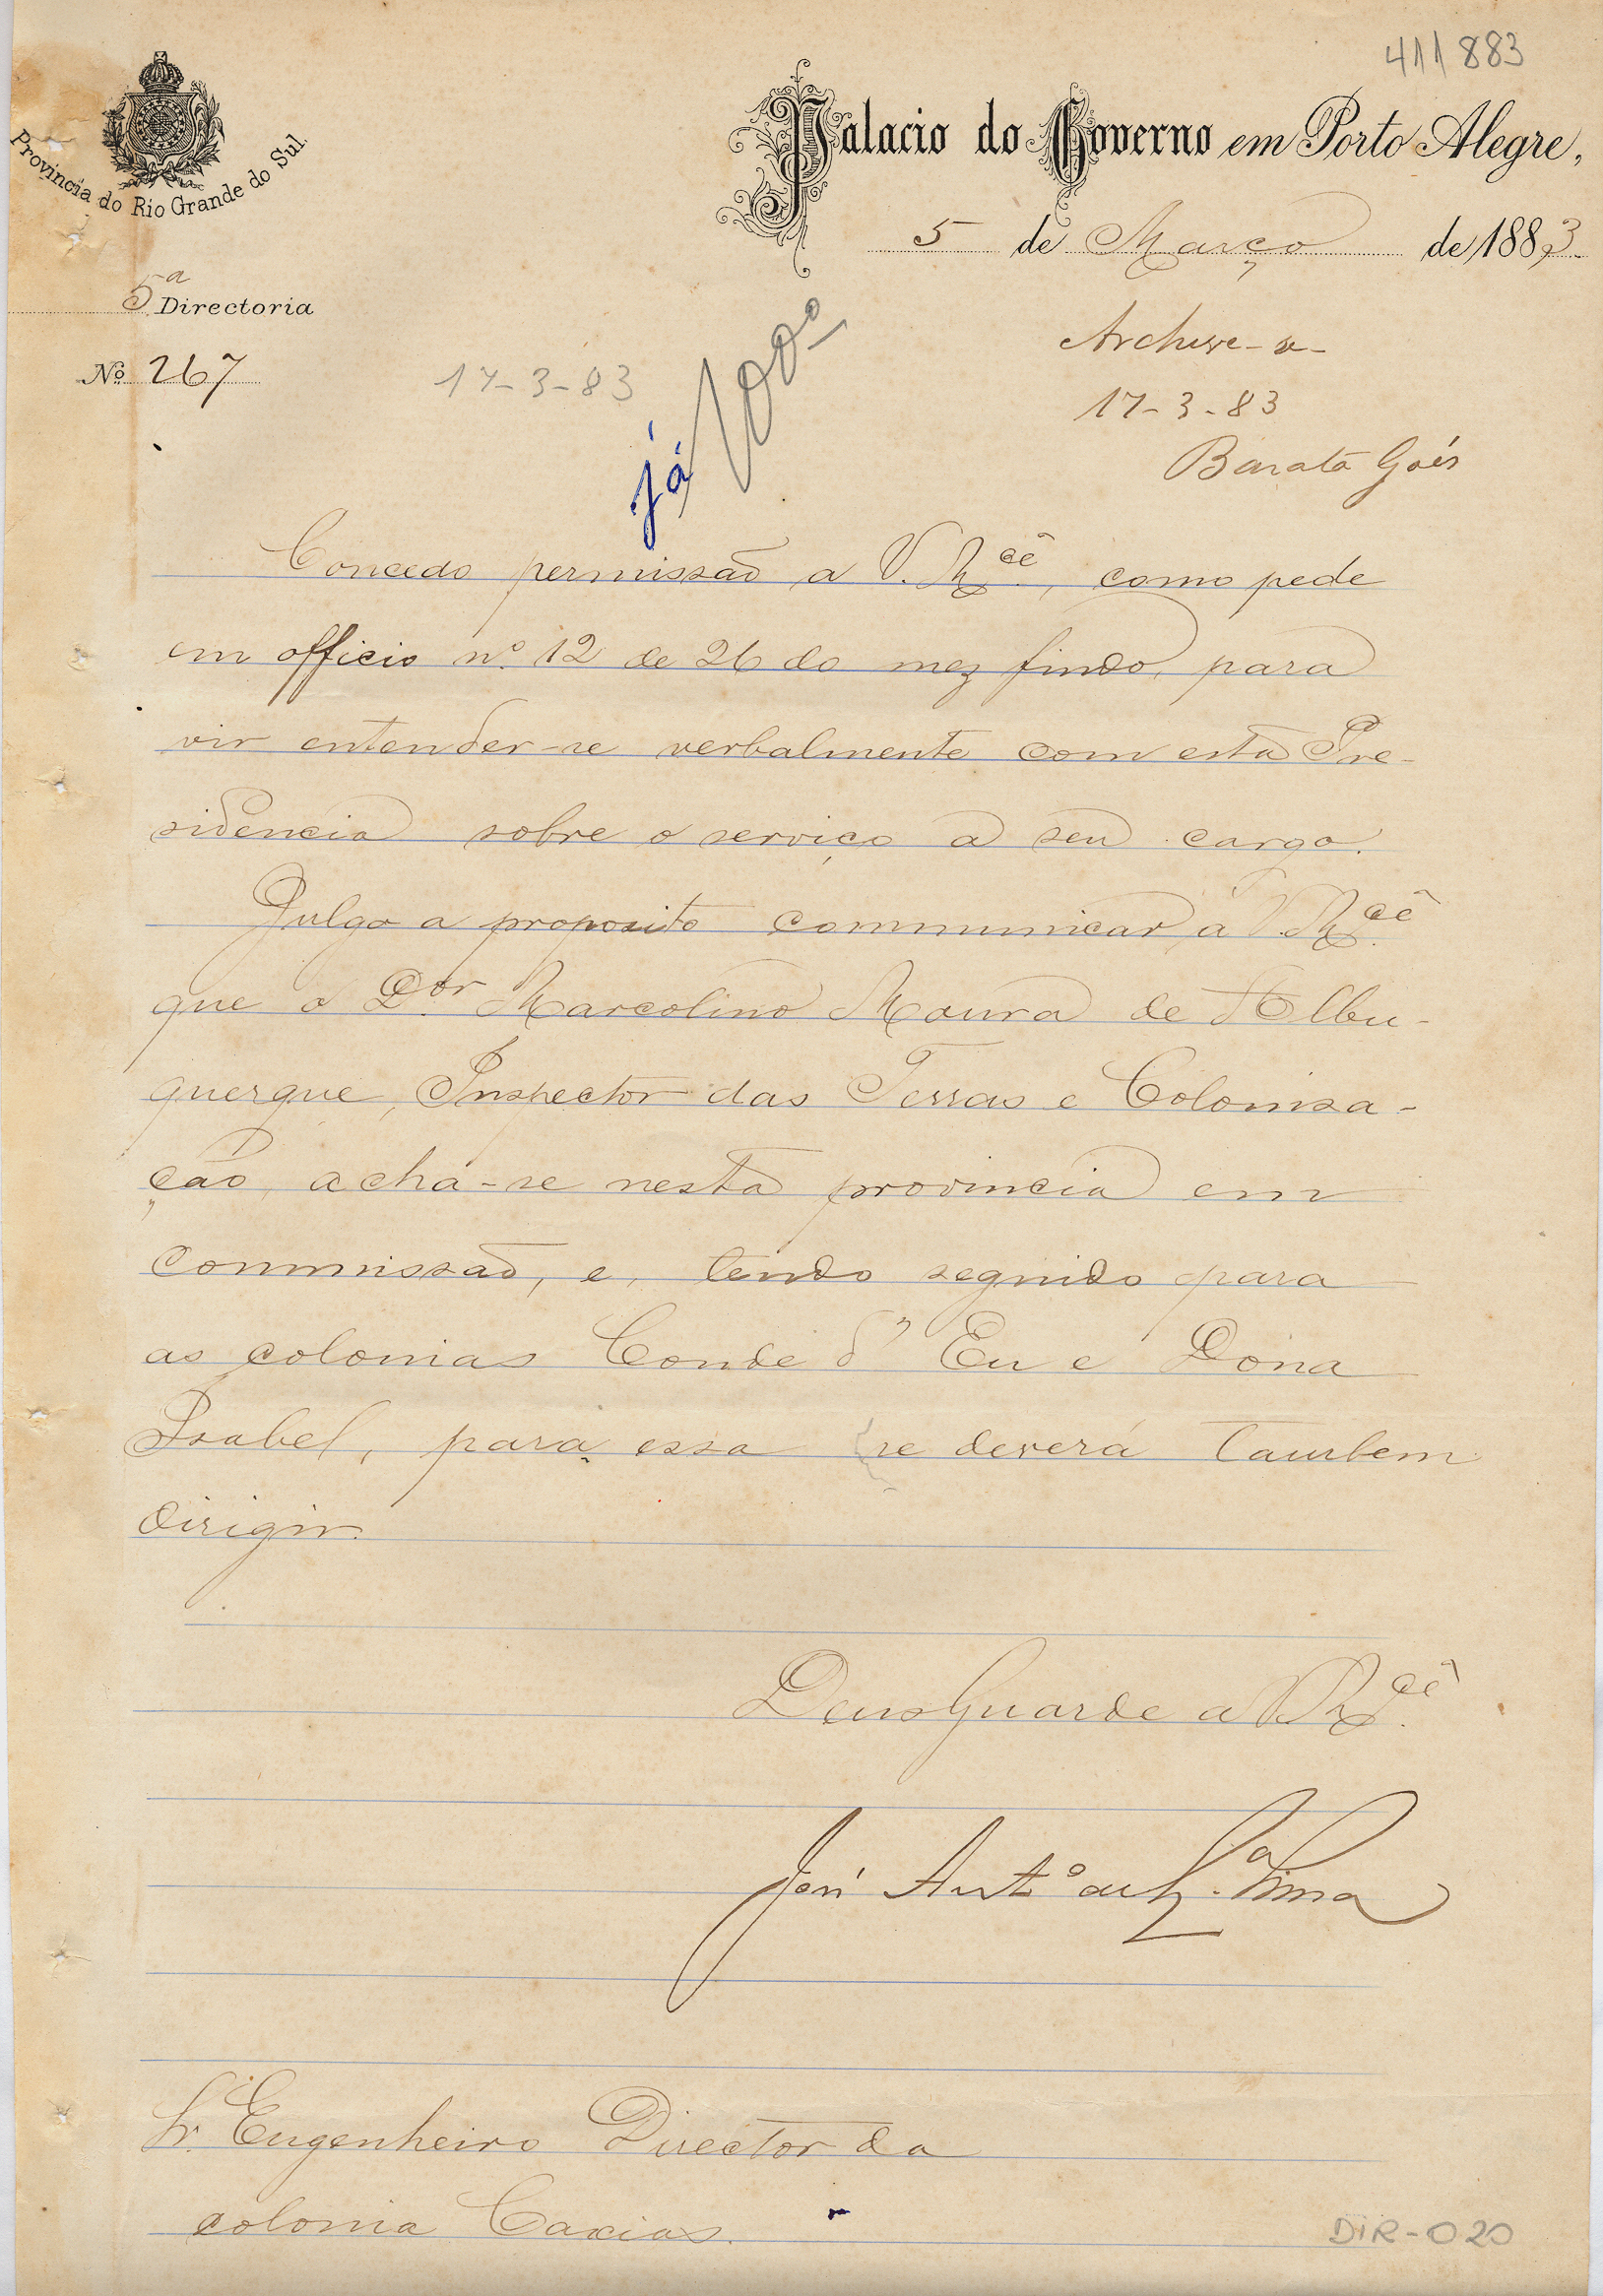 411883
Provincia do Rio Grande do Sul.
Palacio do Governo em Porto Alegre,
5 de Março de 1883
5ª Directoria
Nº 267
17-3-83
já
Archive-se
17-3-83
Barata Goés
Concedo permissão a V. Mcê, como pede
em officio nº 12 de 26 do mez findo, para
vir entender-se verbalmente com esta Pre-
sidencia sobre o serviço a seu cargo.
Julgo a proposito communicar a V. Mcê
que o Dor Marcolino Moura de Albu-
querque, Inspector das Terras e Colonisa-
ção, acha-se nesta provincia em
commissão, e, tendo seguido para
as colonias Conde d'Eu e Dona
Isabel, para essa se deverá tambem
dirigir.
Deus Guarde a V. Mcê
José Antº de Lima
Sr. Engenheiro Director da
colonia Caxias.
DIR-020